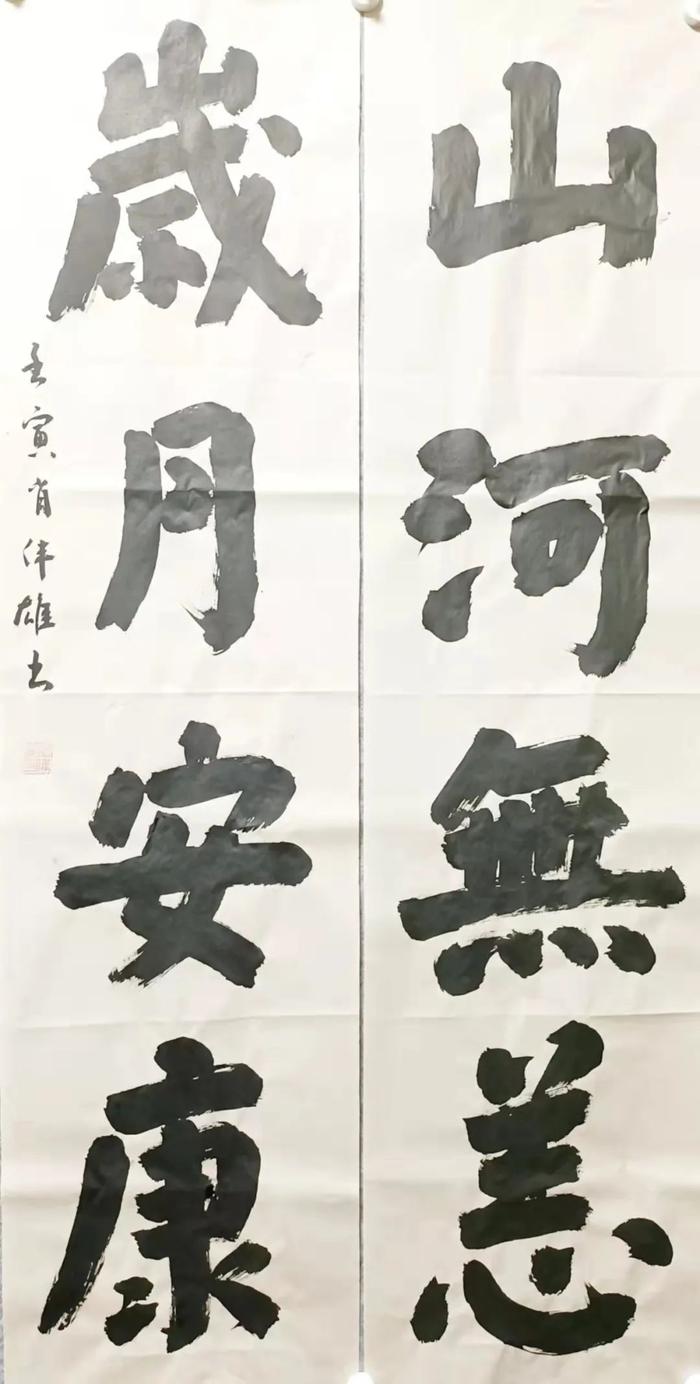 山河無恙
歲月安康
壬寅肖伟雄书